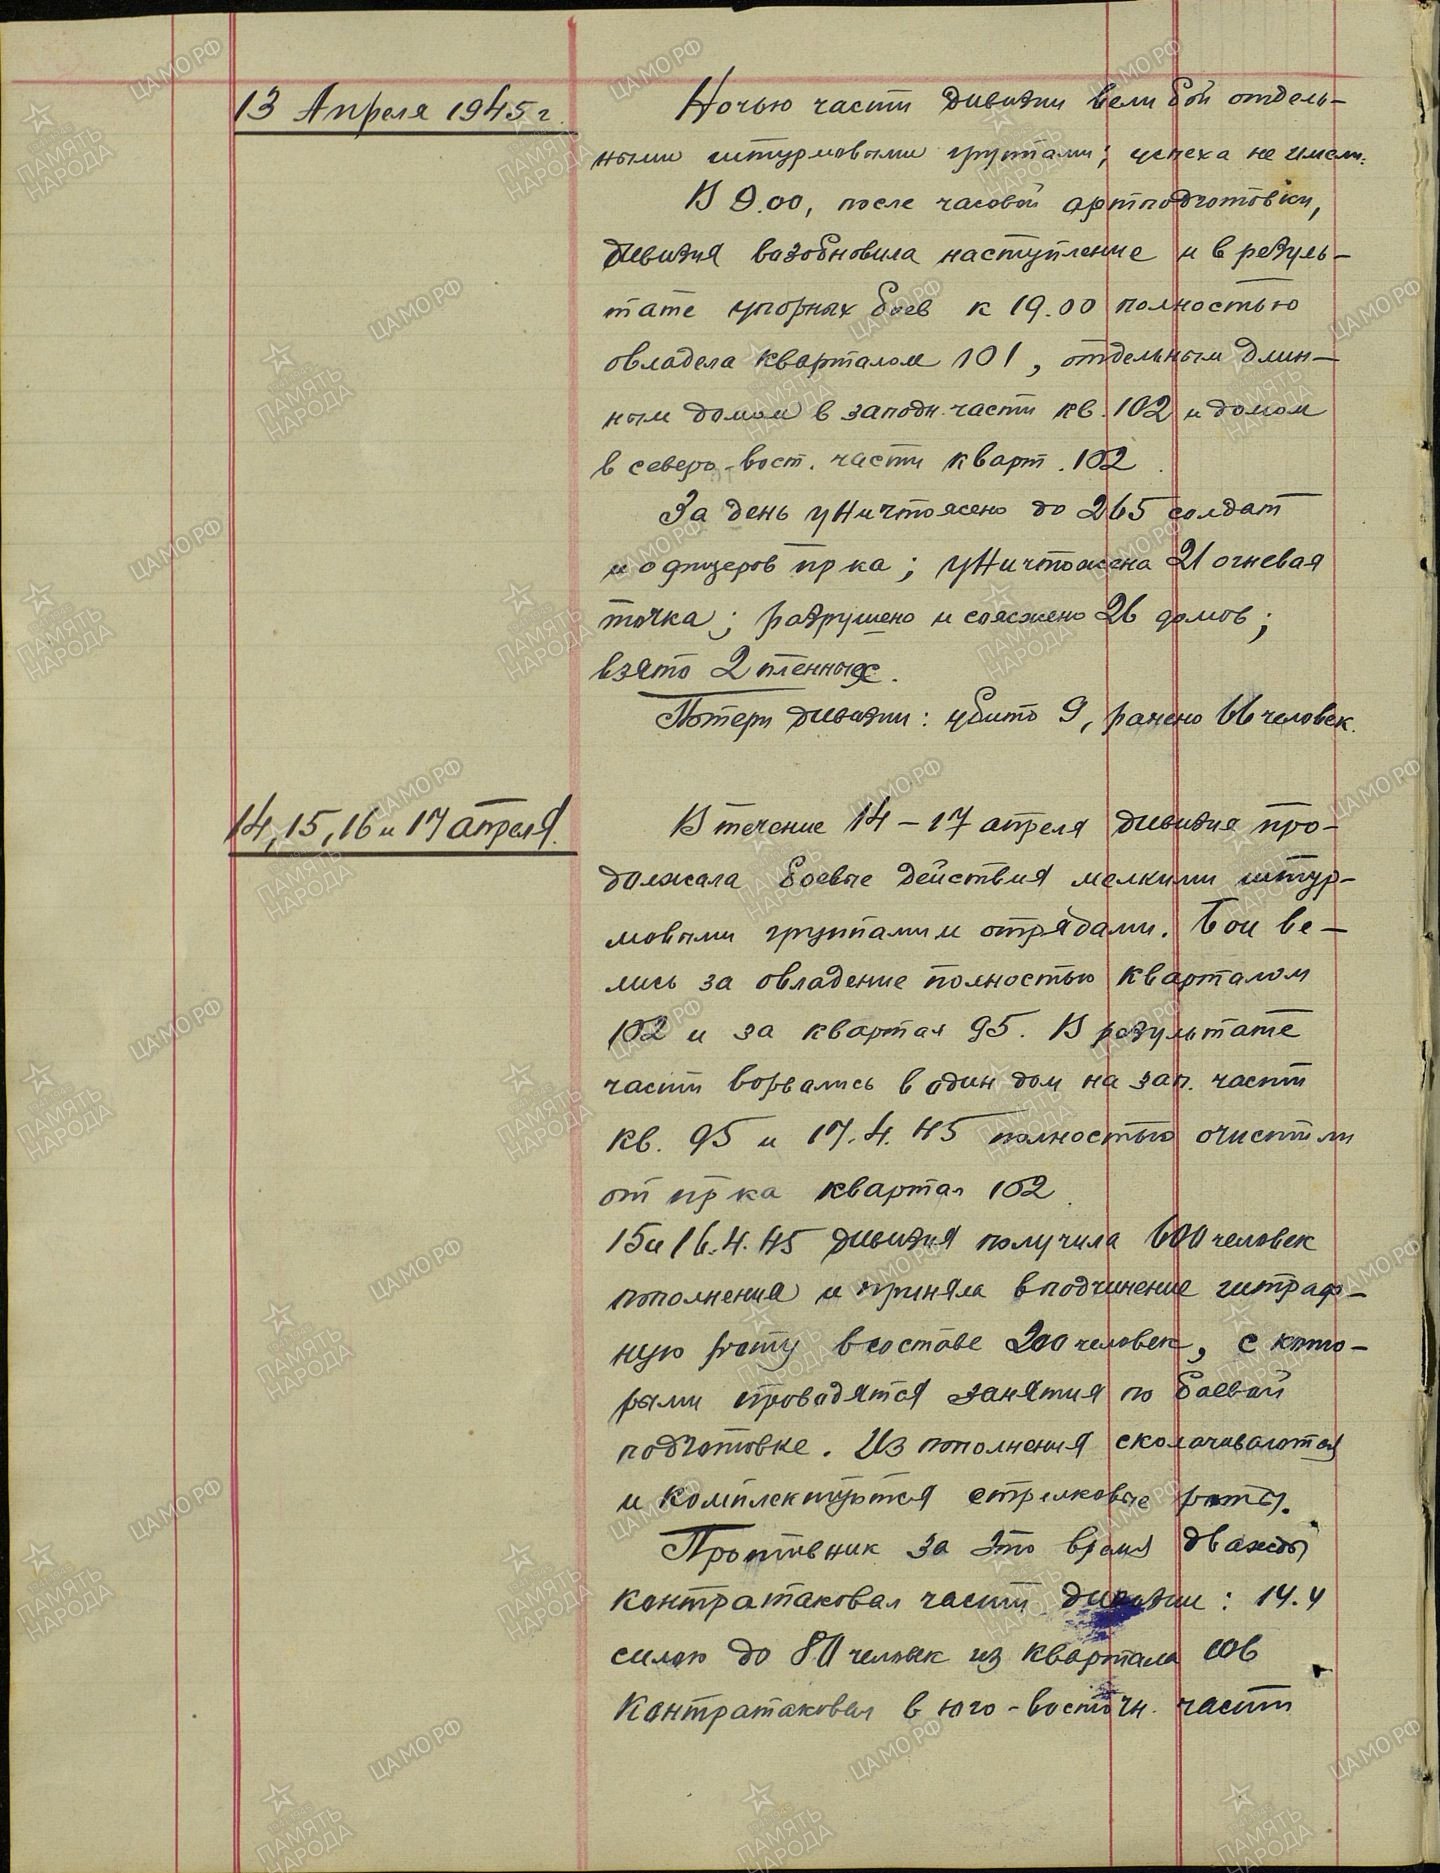 13 Апреля 1945 г.
Ночью части дивизии вели бой отдель-
ными штурмовыми группами; успеха не имели.
В 9.00, после часовой артподготовки,
дивизия возобновила наступление и в резуль-
тате упорных боев к 19.00 полностью
овладела кварталом 101, отдельным длин-
ным домом в западн. части кв. 102 и домом
в северо-вост. части кварт. 102.
За день уничтожено до 265 солдат
и офицеров пр-ка; уничтожена 21 огневая
точка; разрушено и сожжено 26 домов;
взято 2 пленных.
Потери дивизии: убито 9, ранено 66 человек.
14, 15, 16 и 17 апреля.
В течение 14-17 апреля дивизия про-
должала боевые действия мелкими штур-
мовыми группами и отрядами. Бои ве-
лись за овладение полностью кварталом
102 и за квартал 95. В результате
части ворвались в один дом на зап. части
кв. 95 и 17.4.45 полностью очистили
от пр-ка квартал 102.
15 и 16.4.45 дивизия получила 600 человек
пополнения и приняла в подчинение штраф-
ную роту в составе 200 человек, с кото-
рыми проводятся занятия по боевой
подготовке. Из пополнения сколачиваются
и комплектуются стрелковые роты.
Противник за это время дважды
контратаковал части дивизии: 14.4
силою до 80 человек из квартала
контратаковал в юго-восточн. части
ЦАМО.РФ
ПАМЯТЬ
НАРОДА